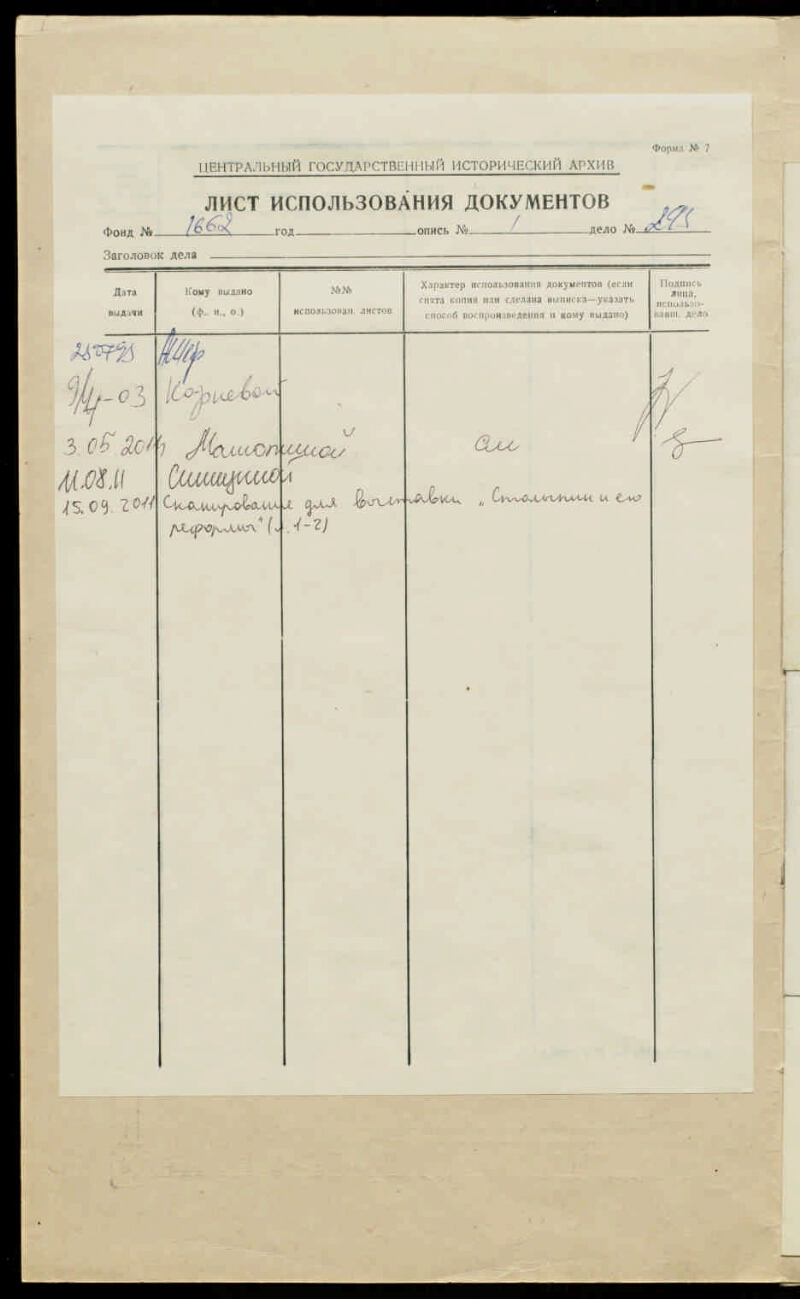 Форма № 7
ЦЕНТРАЛЬНЫЙ ГОСУДАРСТВЕННЫЙ ИСТОРИЧЕСКИЙ АРХИВ
ЛИСТ ИСПОЛЬЗОВАНИЯ ДОКУМЕНТОВ
Фонд № 1662 год опись № 1 дело № 295
Заголовок дела
Дата выдачи
Кому выдано (ф., и., о.)
№№ использован. листов
Характер использования документов (если снята копия или сделана выписка—указать способ воспроизведения и кому выдано)
Подпись лица, использовавш. дело
03 Корневой
3.05.2011
11.08.11 Синициной
15.09.2011 Скопировали для выставки „Столыпин и его
реформы" ( . 1-2)